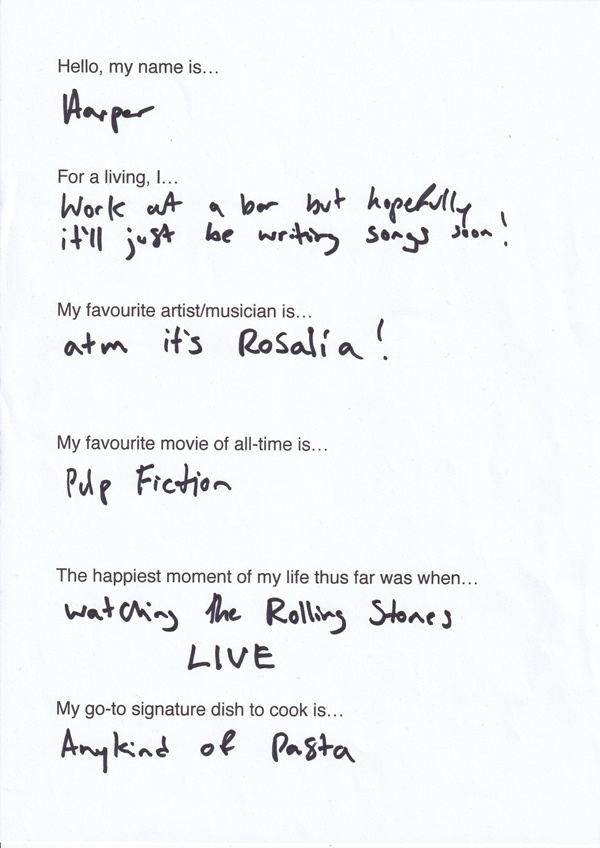 Hello, my name is...
Harper
For a living, I...
Work at a bar but hopefully
it'll just be writing songs soon!
My favourite artist/musician is...
atm it's Rosalía!
My favourite movie of all-time is...
Pulp Fiction
The happiest moment of my life thus far was when...
watching the Rolling Stones
LIVE
My go-to signature dish to cook is...
Anykind of Pasta